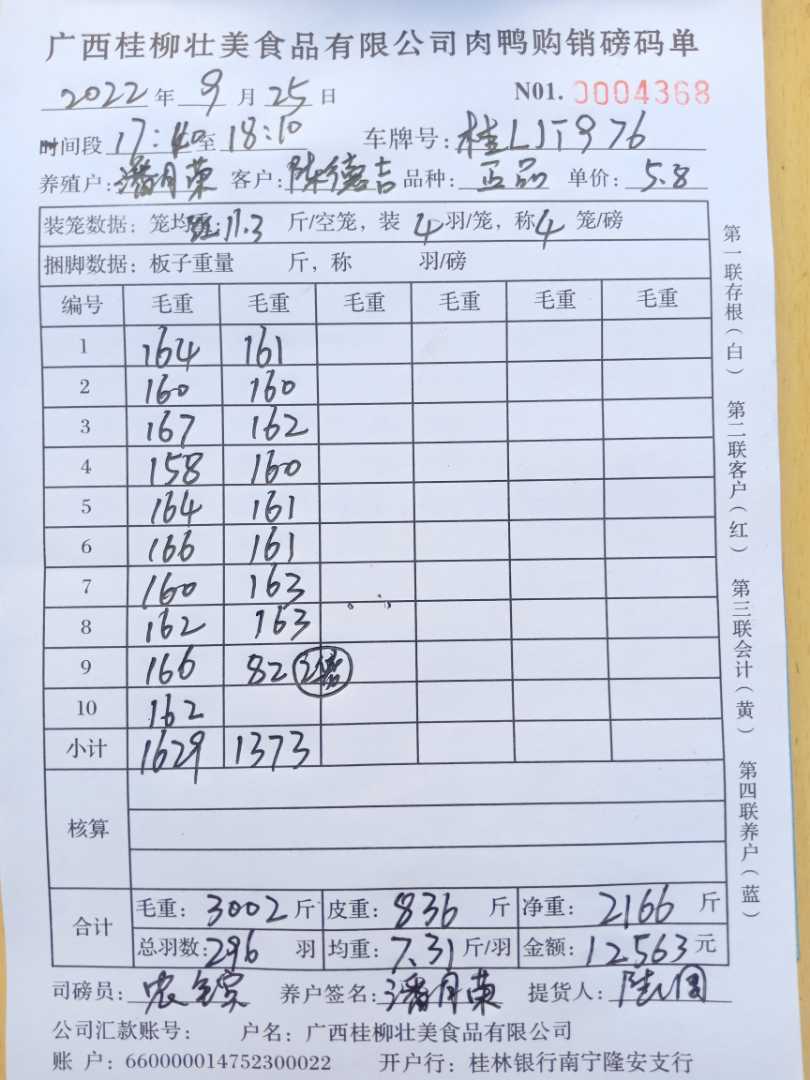 广西桂柳壮美食品有限公司肉鸭购销磅码单
2022年9月25日 N01. 0004368
时间段17:40至18:10 车牌号:桂LJT976
养殖户:潘月荣 客户:陈德吉 品种:正品 单价:5.8
装笼数据:笼均重:11.3斤/空笼,装4羽/笼,称4笼/磅
捆脚数据:板子重量 斤,称 羽/磅
编号 毛重 毛重 毛重 毛重 毛重 毛重
1 164 161
2 160 160
3 167 162
4 158 160
5 164 161
6 166 161
7 160 163
8 162 163
9 166 82
10 162
小计 1629 1373
核算
合计 毛重:3002斤 皮重:836斤 净重:2166斤
总羽数:296羽 均重:7.31斤/羽 金额:12563元
司磅员: 养户签名:潘月荣 提货人:
公司汇款账号: 户名:广西桂柳壮美食品有限公司
账 户:660000014752300022 开户行:桂林银行南宁隆安支行
第一联存根(白) 第二联客户(红) 第三联会计(黄) 第四联养户(蓝)